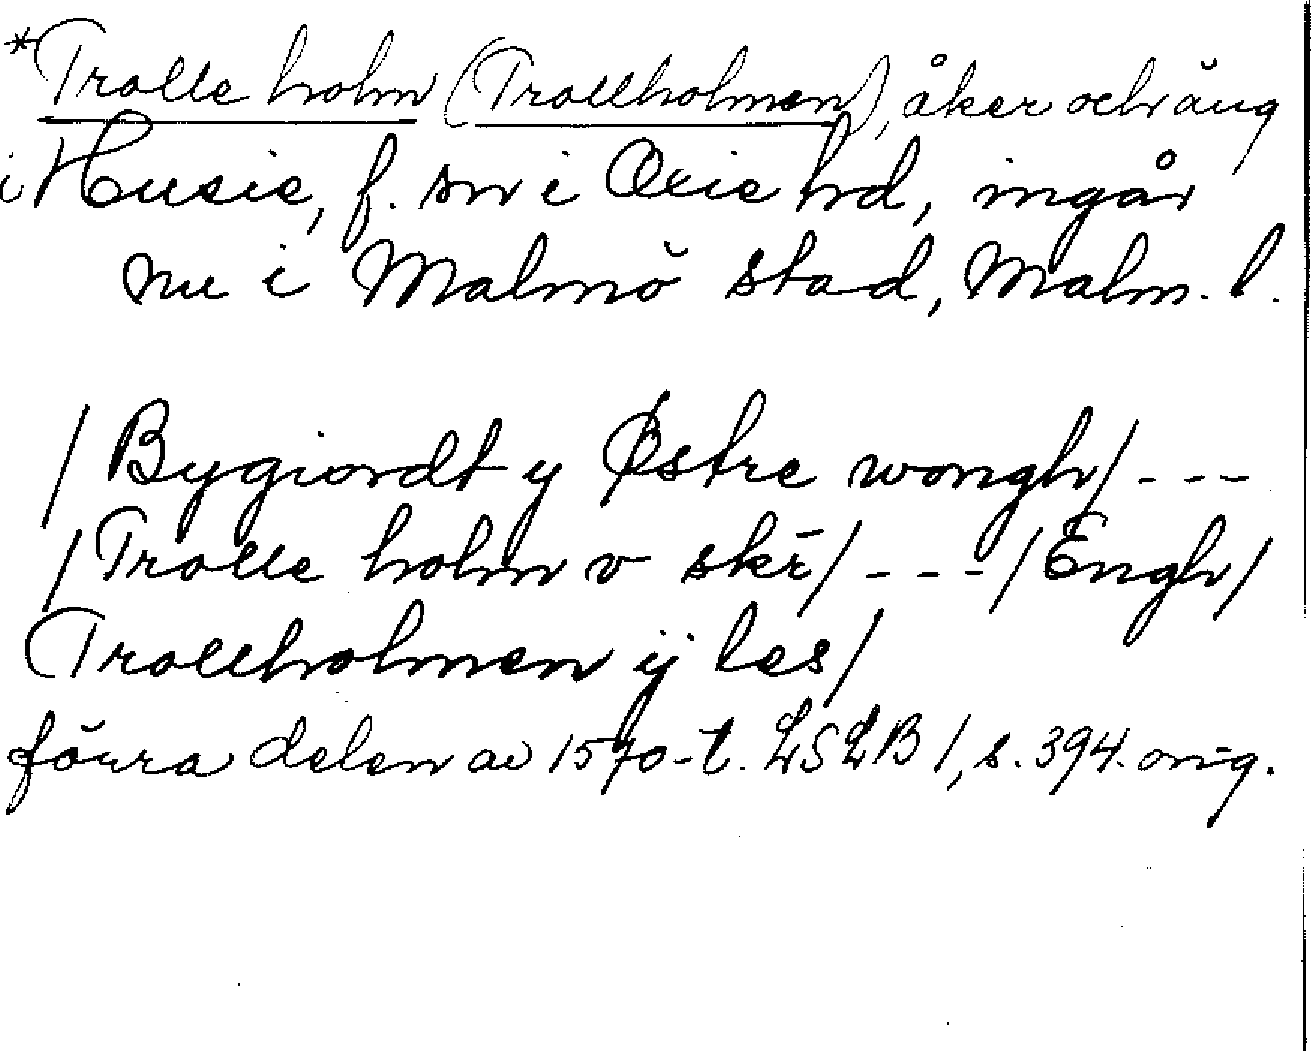 *Trolle holm (Trollholmen), åker och äng
i Husie, f. sn i Oxie hd, ingår
nu i Malmö stad, Malm. l.
/Bygiordt y Østre wongh/ - - -
/Trolle holm v skĩ/ - - - /Engh/
Trollholmen ÿ les/
förra delen av 1570-t. LSLB 1, s. 394. orig.